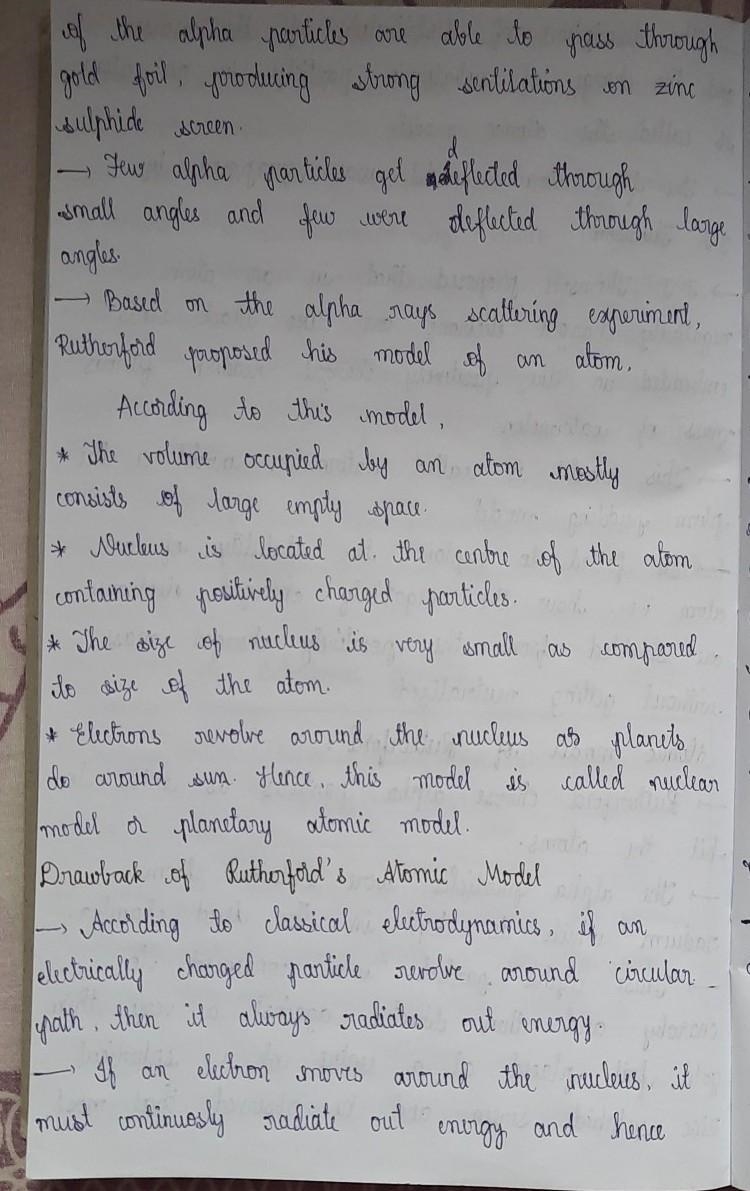 of the alpha particles are able to pass through
gold foil, producing strong sentilations on zinc
sulphide screen.
→ Few alpha particles get deflected through
small angles and few were deflected through large
angles.
→ Based on the alpha rays scattering experiment,
Rutherford proposed his model of an atom,
According to this model,
* The volume occupied by an atom mostly
consists of large empty space.
* Nucleus is located at the centre of the atom
containing positively charged particles.
* The size of nucleus is very small as compared
to size of the atom.
* Electrons revolve around the nucleus as planets
do around sun. Hence, this model is called nuclear
model or planetary atomic model.
Drawback of Rutherford's Atomic Model
→ According to classical electrodynamics, if an
electrically charged particle revolve around circular
path, then it always radiates out energy.
→ If an electron moves around the nucleus, it
must continuosly radiate out energy and hence